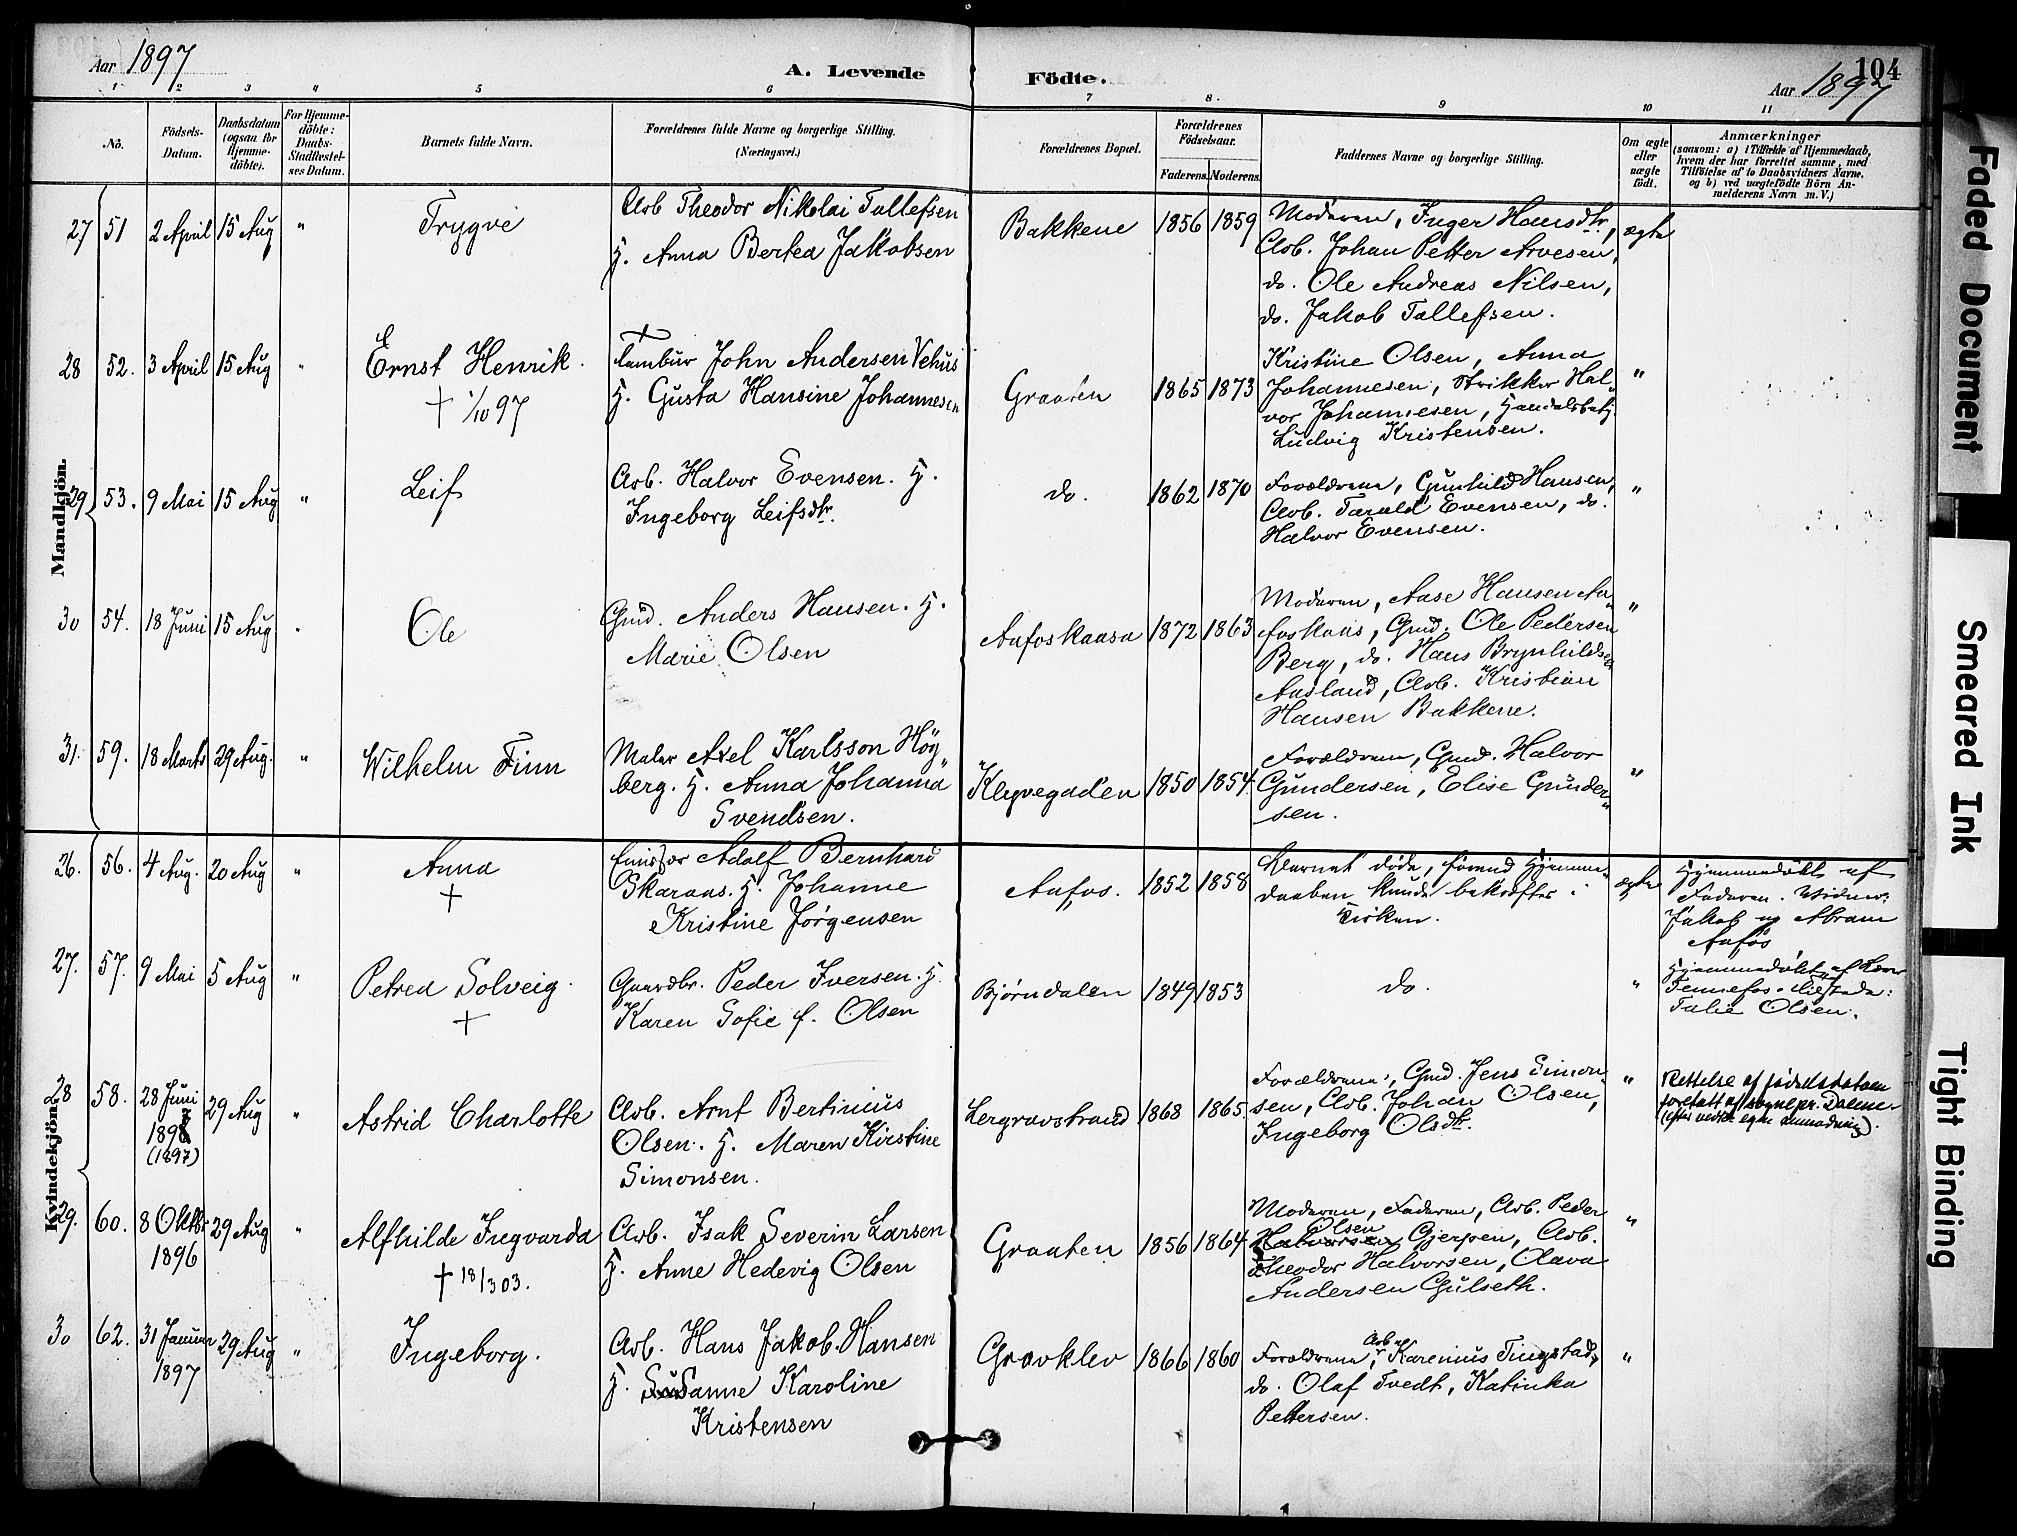 Aar 1897
A. Levende
Födte.
Aar 1897
104
1 2 3 4 5 6 7 8. 9 10 11
No.
Födsels-
Datum.
Daabsdatum
(ogsaa for
Hjemme-
döbte).
For Hjemme-
döbte:
Daabs-
Stadfæstel-
ses Datum.
Barnets fulde Navn.
Forældrenes fulde Navne og borgerlige Stilling.
(Næringsvei.)
Forældrenes Bopæl.
Forældrenes
Födselsaar.
Faderens. Moderens.
Faddernes Navne og borgerlige Stilling.
Om ægte
eller
uægte
födt.
Anmærkninger
(saasom: a) i Tilfælde af Hjemmedaab,
hvem der har forrettet samme, med
Tilföielse af to Daabsvidners Navne.
og b) ved uægtefödte Börn An-
melderens Navn m. V.)
Mandkjön.
27 51 2 April 15 Aug " Trygve
Arb Theodor Nikolai Tallefsen
H. Anna Bertea Jakobsen
Bakkene 1856 1859
Moderen, Inger Hansdtr,
Arb. Johan Petter Arvesen,
do. Ole Andreas Nilsen,
do. Jakob Tallefsen.
ægte
28 52. 3 April 15 Aug " Ernst Henrik.
† 1/10 97
†
Tambur John Andersen Vehus
H. Gusta Hansine Johannesen
Graaten 1865 1873
Kristine Olsen, Anna
Johannesen, Strikker Hal-
vor Johannesen, Handelsbetj
Ludvig Kristensen.
"
29 53. 9 Mai 15 Aug " Leif
Arb. Halvor Evensen. H.
Ingeborg Leifsdtr.
do. 1862 1870
Forældrene, Gunhild Hansen,
Arb. Tarald Evensen, do.
Halvor Evensen.
"
30 54. 18 Juni 15 Aug " Ole
Gmd. Anders Hansen. H.
Marie Olsen
Aafoskaasa 1872 1863
Moderen, Aase Hansen Aa-
foskaas, Gmd. Ole Pedersen
Berg, do. Hans Brynhildsen
Aasland, Arb. Kristian
Hansen Bakkene.
"
31. 59. 18 Marts 29 Aug. " Wilhelm Finn
Maler Axel Karlsson Høg-
berg. H. Anna Johanna
Svendsen.
Klyvegaden 1850 1854.
Forældrene, Gmd. Halvor
Gundersen, Elise Gunder-
sen.
"
Kvindekjön.
26. 56. 4 Aug. 20 Aug " Anna
†
Emissør Adolf Bernhard
Skaraas. H. Johanne
Kristine Jørgensen
Aafos. 1852 1858
Barnet døde, førend Hjemme-
daaben kunde bekræftes i
Kirken.
ægte
Hjemmedøbt af
Faderen. Vidner:
Jakob og Abram
Aafos
27. 57. 9 Mai 5 Aug " Petrea Solveig.
†
Gaardbr. Peder Iversen. H.
Karen Sofie f. Olsen
Bjørndalen 1849 1853
do.
"
Hjemmedøbt af
Talie Olsen.
28 58. 28 Juni
1898
(1897)
29 Aug " Astrid Charlotte
Arb. Arnt Bertinius
Olsen. H. Maren Kirstine
Simonsen.
Lergravstrand 1868 1865.
Forældrene, Gmd. Jens Simon-
sen, Arb. Johan Olsen,
Ingeborg Olsdtr.
"
Rettelse af fødselsdatoen
foretatt af sognepr. Dalene.
29. 60. 8 Oktbr
1896
29 Aug " Alfhilde Ingvarda
† 18/3 03.
Arb. Isak Severin Larsen
H. Anne Hedevig Olsen
Graaten 1856 1864
Moderen, Faderen, Arb. Peder
Olsen
Halvorsen Gjerpen, Arb.
Theodor Halvorsen, Olava
Andersen Gulseth.
"
30 62. 31 Januar
1897
29 Aug " Ingeborg.
Arb. Hans Jakob Hansen
H. Susanne Karoline
Kristensen
Gravklev 1866 1860
Arb.
Forældrene, Karenius Tingstad,
do. Olaf Tvedt, Katinka
Pettersen.
"
Faded Document
Smeared Ink
Tight Binding